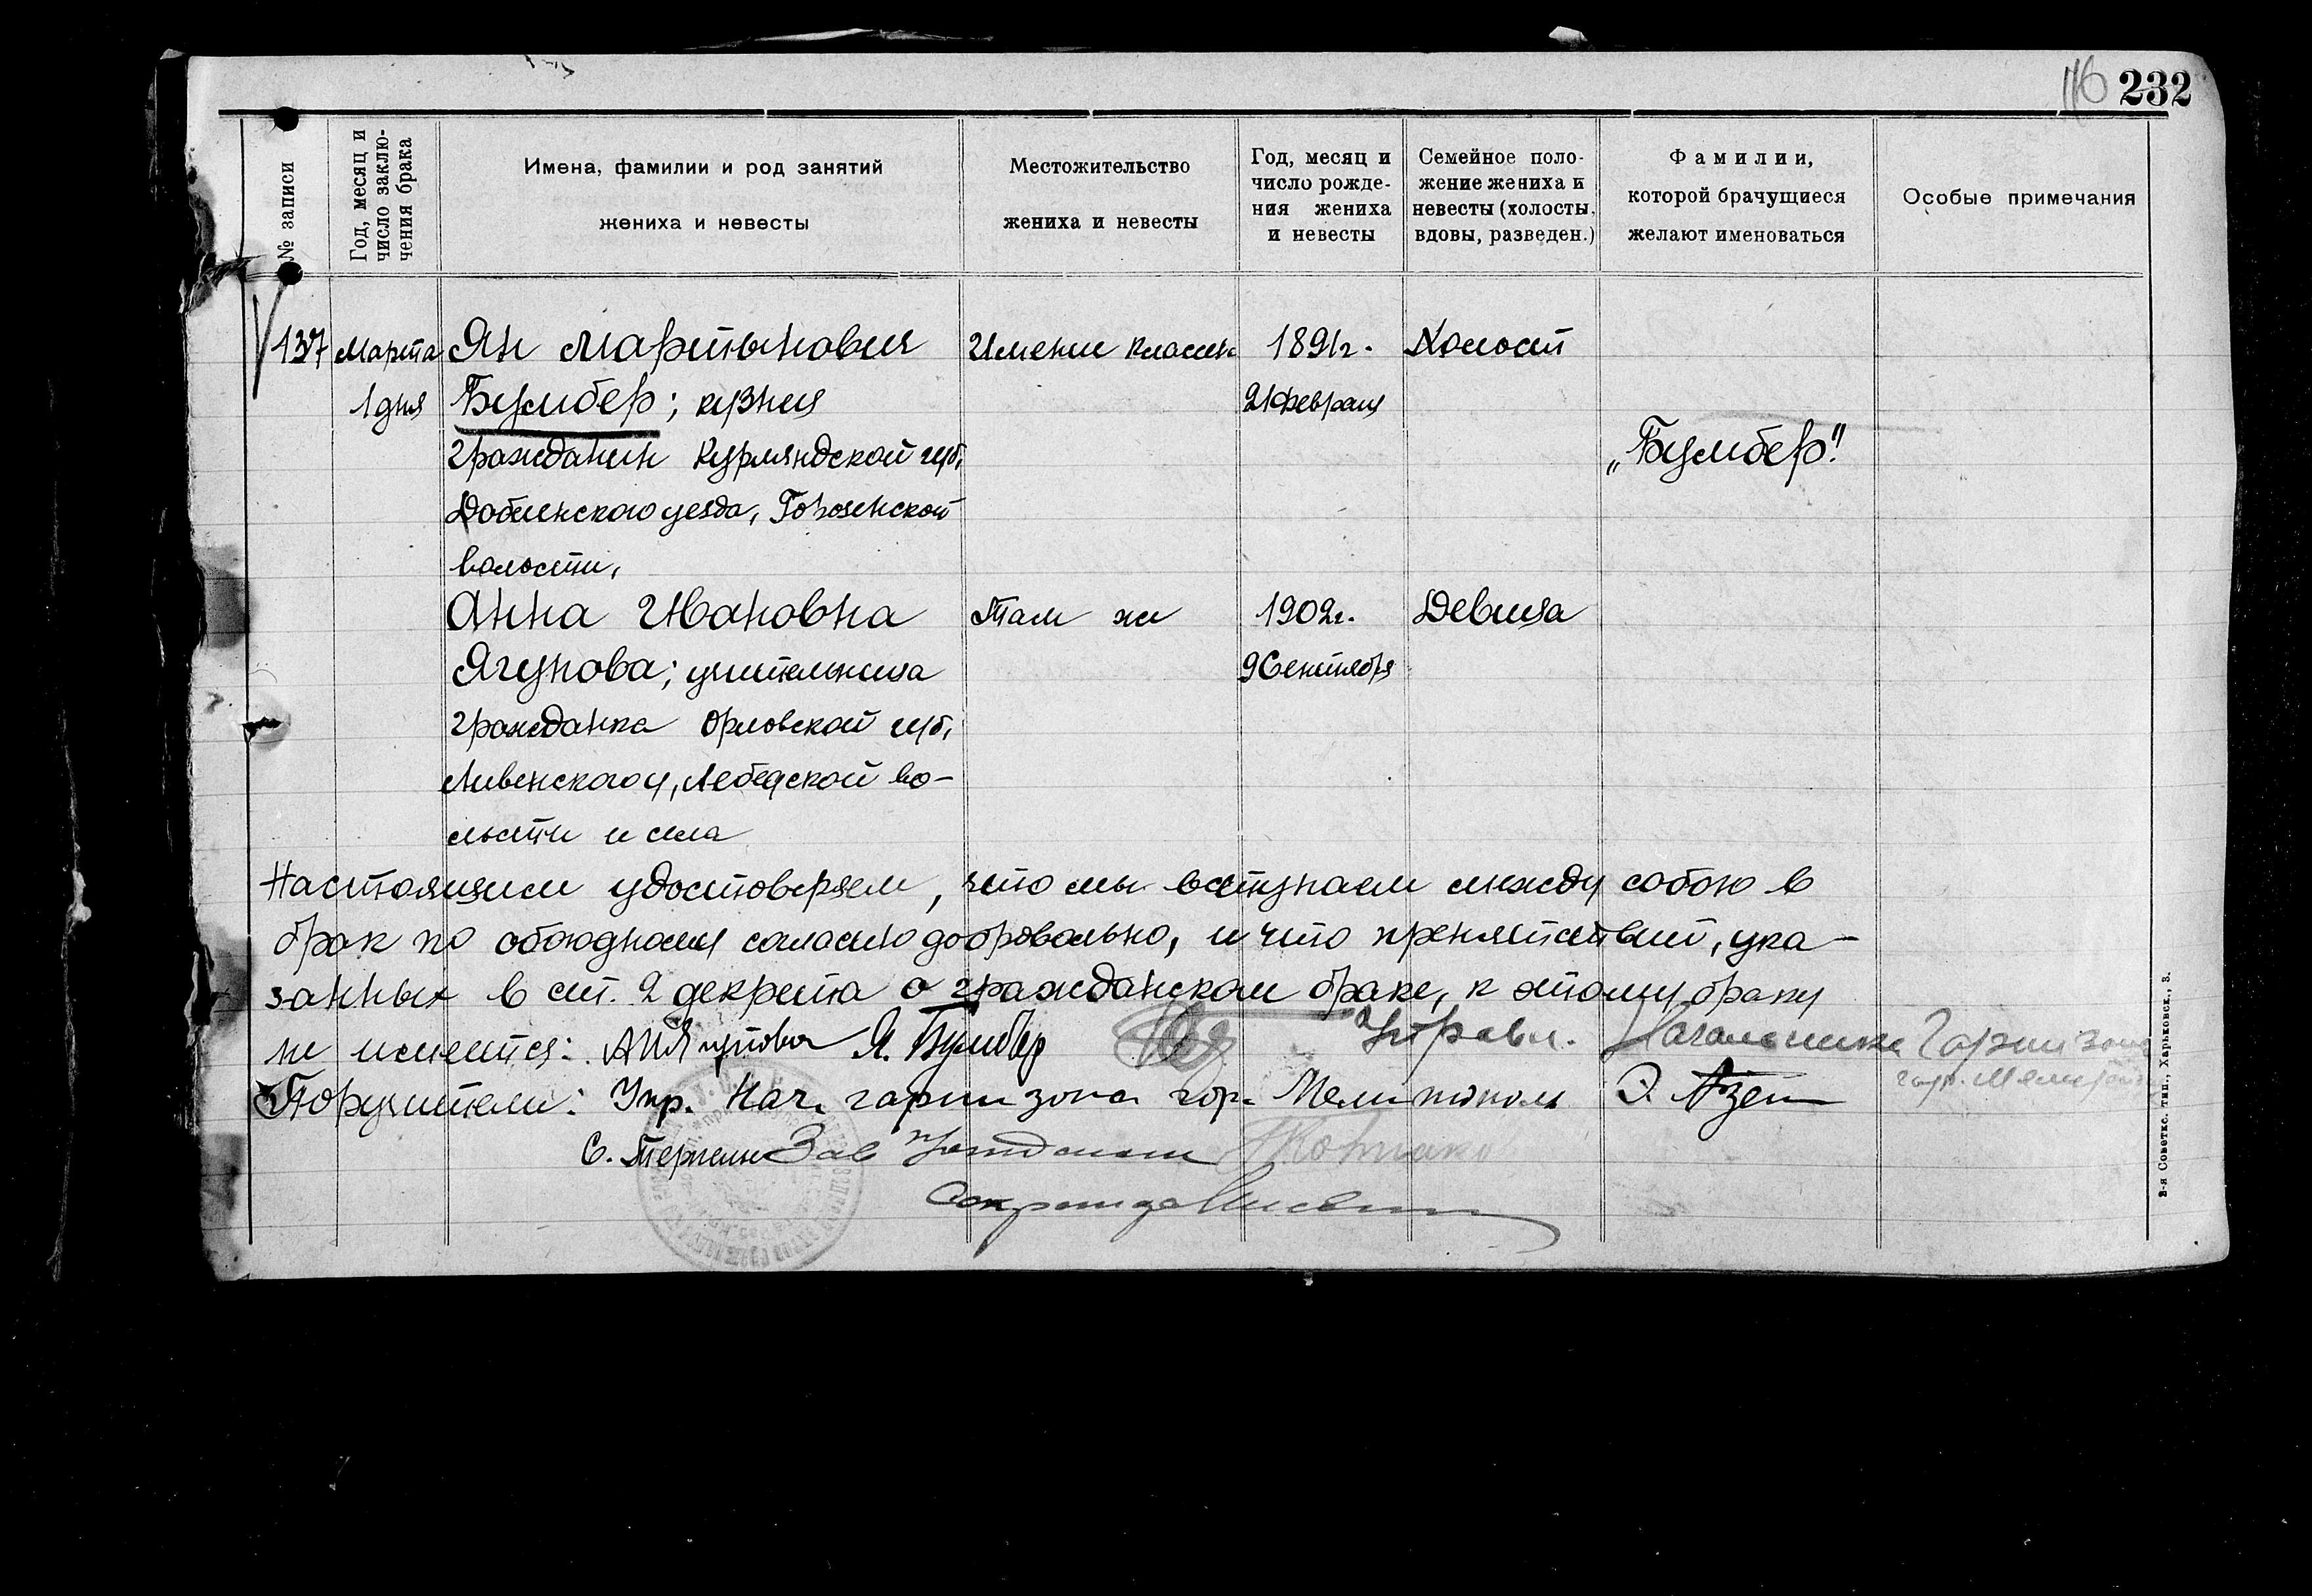 116 232
№ записи
Год, месяц и
число заклю-
чения брака
Имена, фамилии и род занятий
жениха и невесты
Местожительство
жениха и невесты
Год, месяц и
число рожде-
ния жениха
и невесты
Семейное поло-
жение жениха и
невесты (холосты,
вдовы, разведен.)
Фамилии,
которой брачущиеся
желают именоваться
Особые примечания
137 Марта Ян Мартынович Имение 1891г. Холост
1 дня Бумбер; 21 Февраля
гражданин Курляндской губ.
„Бумбер"
Добленского уезда,
волости,
Анна Ивановна Там же 1902г. Девица
Ягунова; учительница 9 Сентября
гражданка Орловской губ,
Ливенского у, Лебедской во-
лости и села
Настоящим удостоверяем, что мы вступаем между собою в
брак по обоюдному согласию добровольно, и что препятствий, ука-
занных в ст. 2 декрета о гражданском браке, к этому браку
не имеется: А И Ягунова Я. Бумбер Управл. Начальника Гарнизона
гор.
Поручители: Упр. Нач. гарнизона гор. Мелитополь Э.
С. Зав
2-я Советск. тип., Харьковск., 3.